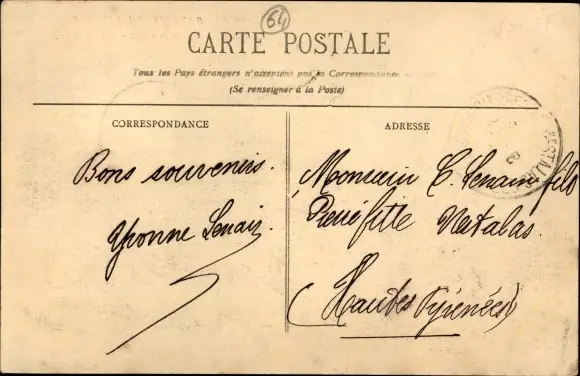 64
CARTE POSTALE
Tous les Pays étrangers n'acceptent pas la Correspondance
(Se renseigner à la Poste)
CORRESPONDANCE
Bons souvenirs.
Yvonne Lenain
ADRESSE
Monsieur C. Lenain fils
Pierrefitte Nestalas.
(Hautes Pyrénées)